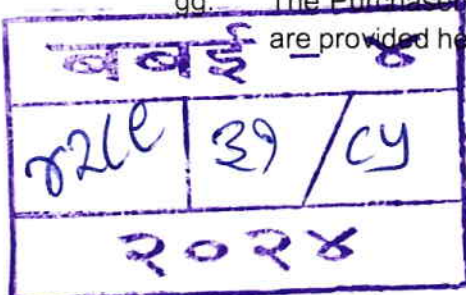 gg. The Purchaser
are provided he
बबई - ४
३१ / ८५
२०२४